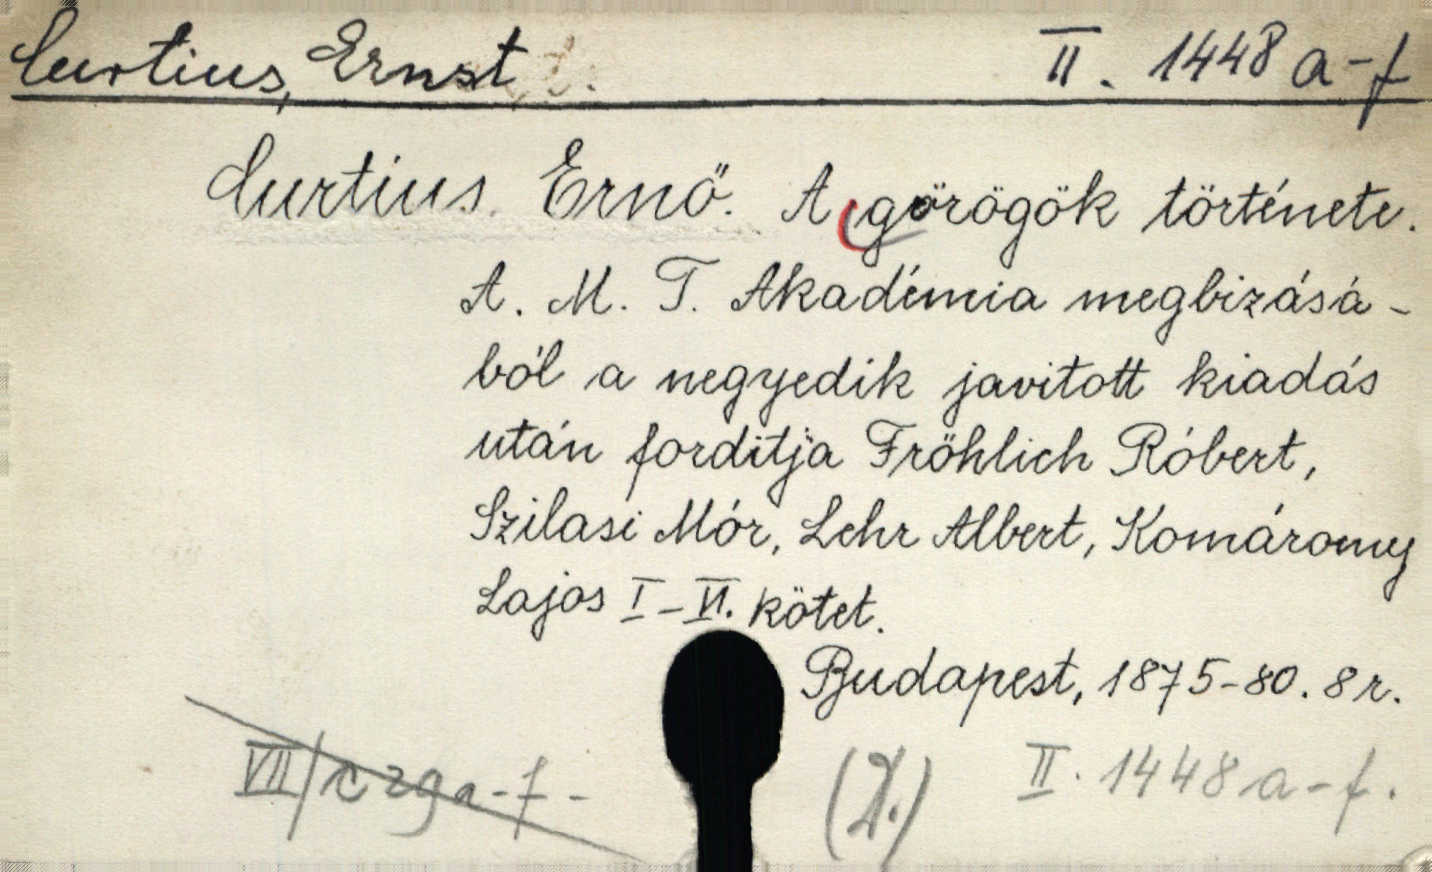 Curtius, Ernst
II. 1448 a-f
Curtius Ernő. A görögök története.
A. M. T. Akadémia megbizásá-
ból a negyedik javitott kiadás
után forditja Fröhlich Róbert,
Szilasi Mór, Lehr Albert, Komáromy
Lajos I-VI. kötet.
Budapest, 1875-80. 8r.
II. 1448 a-f.